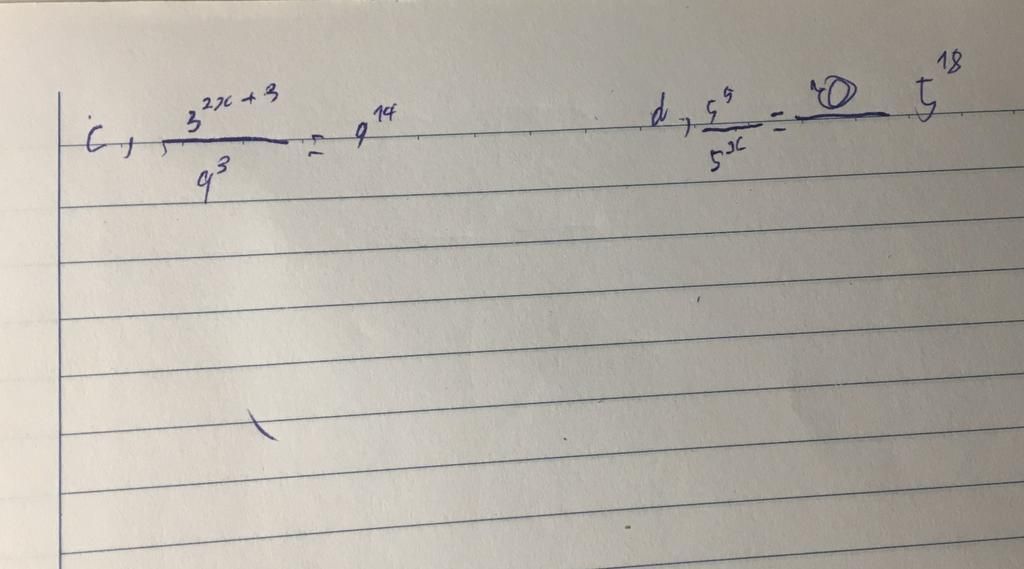 c, 3^{2x+3} / 9^3 = 9^{14} d, 5^5 / 5^x = 5^{18}